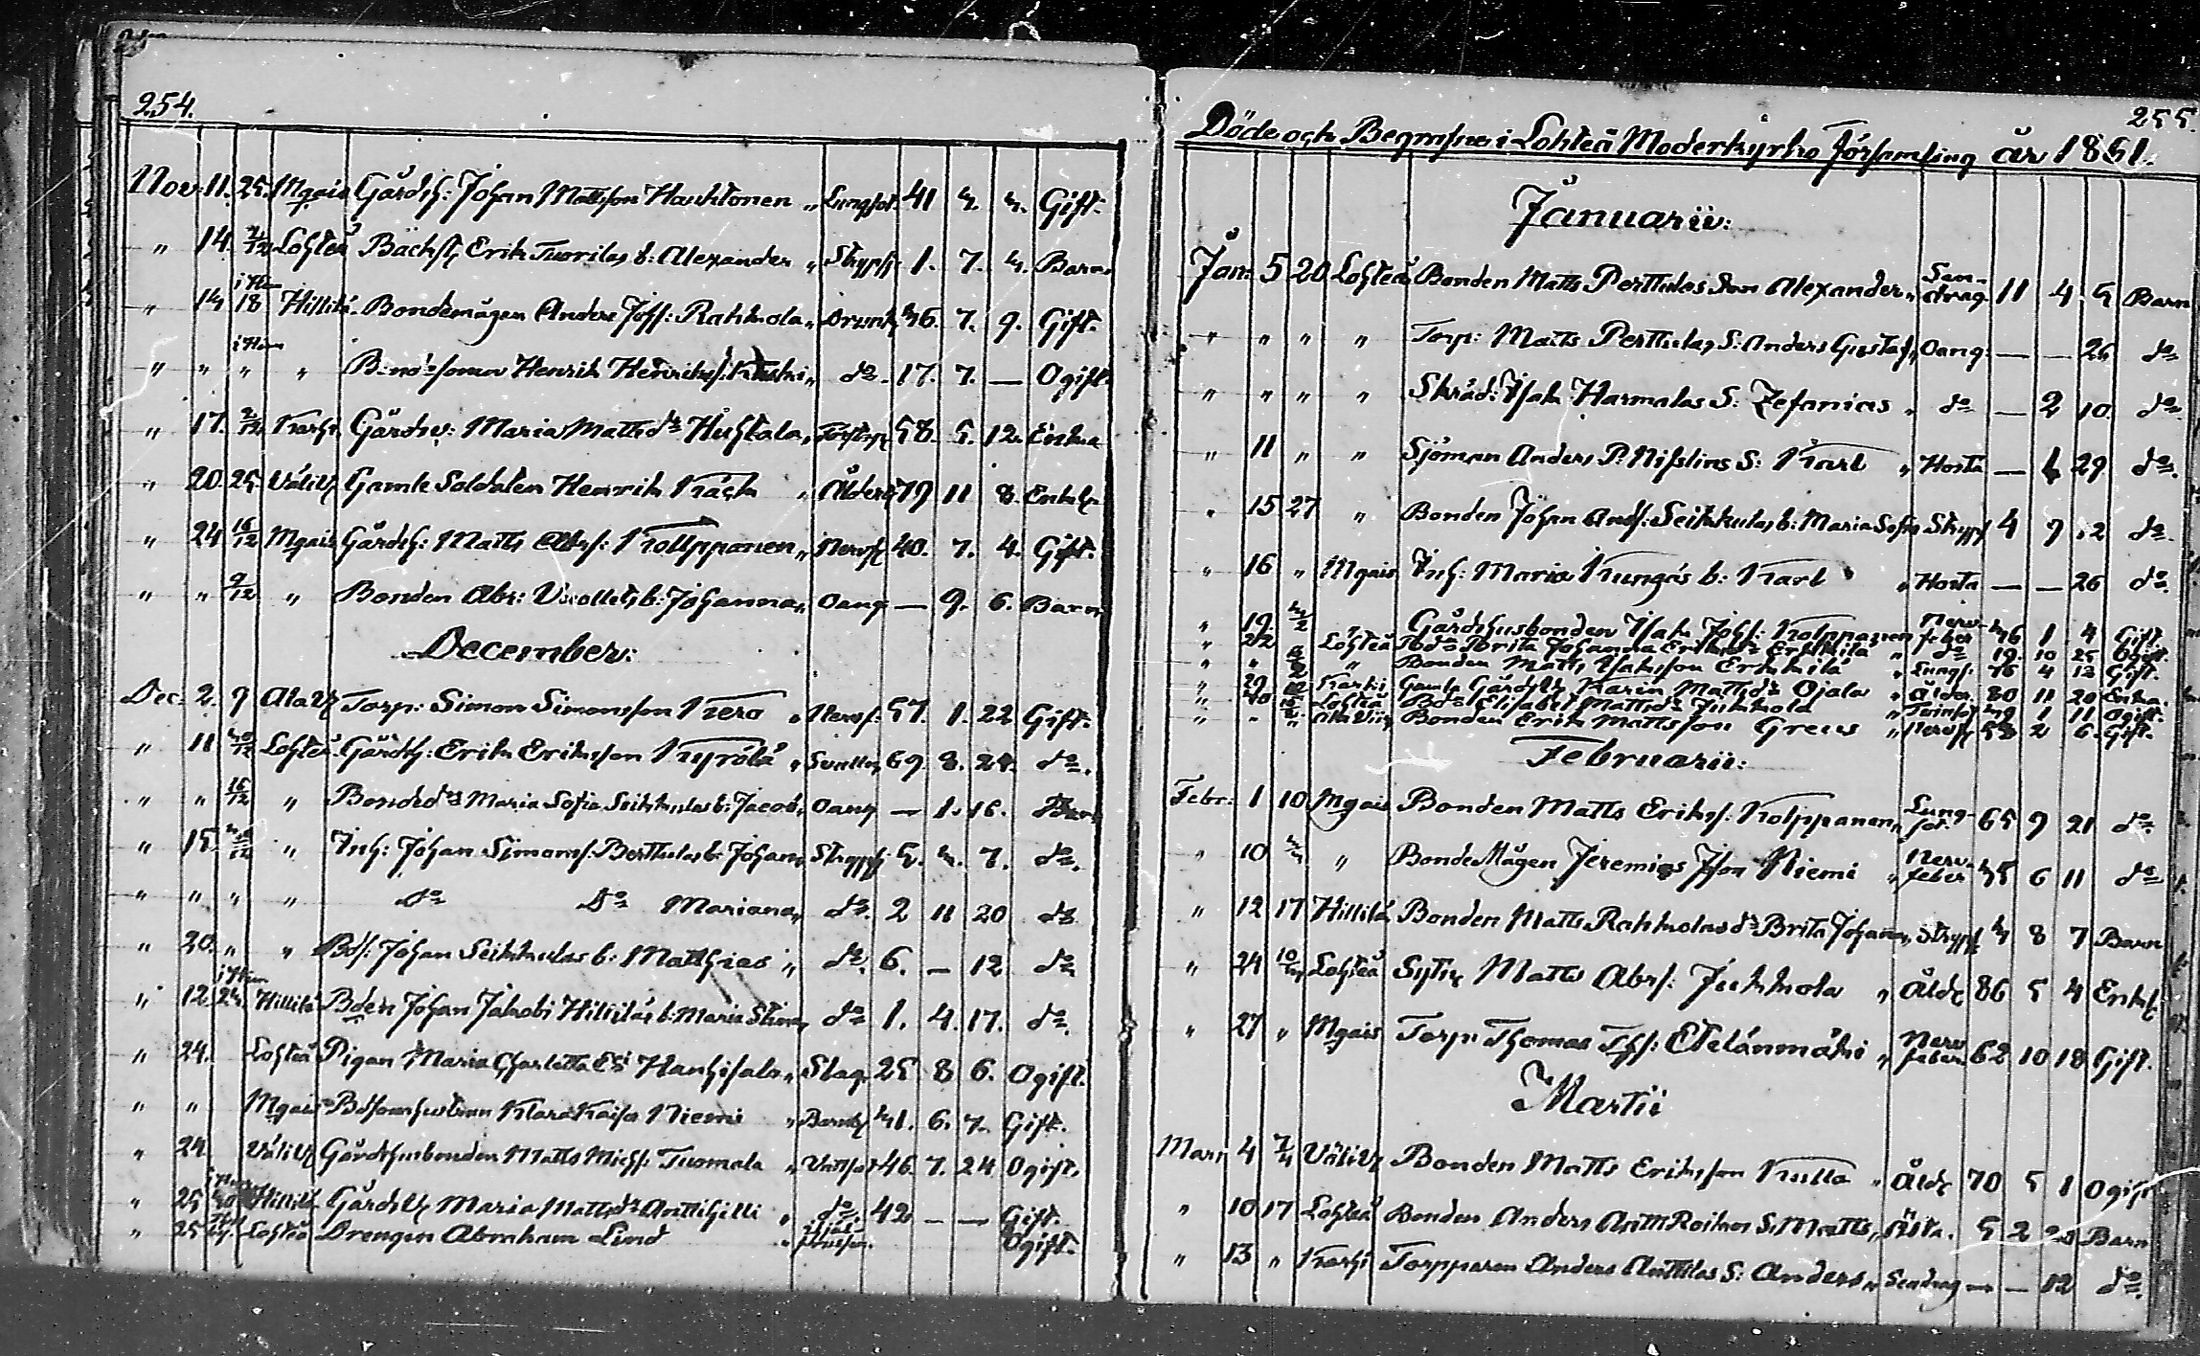 254.
Nov. 11. 25. Mgais Gårdsh: Johan Mattsson Hauhtonen „ Lungsot. 41 4. 4. Gift.
„ 14. 2/12 Lohteå Bäckst, Erik Tuorilas b: Alexander „ Strypsj. 1. 7. 4. Barn
„ 14 18 Hillilä Bondemågen Anders Johs: Rahkola „ Drunk. 46. 7. 9. Gift.
„ „ „ „ Bondesonen Henrik Henriks. „ do. 17. 7. — Ogift.
„ 17. 2/12 Karhi Gårdsv: Maria Mattsdr Huhtala „ 58. 5. 12. Enka
„ 20. 25 Väliv. Gamle Soldaten Henrik Käck „ Ålderd. 79 11 8. Enkl.
„ 24 16/12 Mgais Gårdsh: Matts Abrs: Kolppanen „ Nervf. 40. 7. 4. Gift.
„ „ 9/12 „ Bonden Abr: b: Johanna „ Oang — 9. 6. Barn
December:
Dec. 2. 9 Alav. Torp: Simon Simonsson Kero „ Nervf. 57. 1. 22 Gift.
„ 11 Lohteå Gårdsh: Erik Eriksson Kyrölä „ 69. 8. 24. do.
„ „ 16/12 „ Bondedr Maria Sofia Seikkulas b: Jacob „ Oang — 1. 16. Barn
„ 15. „ Inh: Johan Simons. Perttulas b: Johan „ Strypsj 5. 4. 7. do.
„ „ „ „ do do Mariana „ do. 2 11 20 do.
„ 20. „ „ Bds: Johan Seikkulas b: Matthias „ do. 6. — 12 do
„ 12. 24. Hillilä Bden Johan Jakobs Hilliläs b: Maria Stina „ do 1. 4. 17. do.
„ 24. Lohteå Pigan Maria Charlotta Hanhisalo „ Slag. 25 8 6. Ogift.
„ „ Mgais Klara Kaisa Niemi „ Barnb. 41. 6. 7. Gift.
„ 24. Väliv. Gårdshusbonden Matts Michs: Tuomala „ Vattsot 46. 7. 24 Ogift.
„ 25 Hillilä Maria Mattsdr Anttihilli „ do. 42 — — Gift.
„ 25 Lohteå Drengen Abraham Lind „ Ogift.
255.
Döde och Begrafne i Lohteå Moderkyrko Församling år 1861.
Januarii:
Jan: 5 20 Lohteå Bonden Matts Perttulas Son Alexander „ Sendrag. 11 4 5 Barn
„ „ „ „ Torp: Matts Perttulas S: Anders Gustaf „ Oang. — — 26 do
„ „ „ „ Skräd: Isak Harmalas S: Zefanias „ do — 2 10. do
„ 11 „ „ Sjöman Anders P. Nisslins S: Karl „ Hosta — 1 29 do.
„ 15. 27 „ Bonden Johan Ands: Seikkulas b: Maria Sofia Strypsj 4 9 12 do.
„ 16 „ Mgais Inh: Maria Kungas b: Karl „ Hosta — — 26 do.
„ 19. „ Gårdshusbonden Isak Johs: Kolppanen Nervfeber 46 1 4 Gift.
„ 22 Lohteå Brita Johanna Eriksdr Erkkilä „ do 19. 10 25 Ogift.
„ „ „ Bonden Matts Isaksson Erkkilä „ Lungs. 76 4 13 Gift.
„ 29 Karhi Gamla Karin Mattsdr Ojala „ Ålder. 80 11 20 Enka.
„ 30 Lohteå Elisabet Mattsdr Jukkola „ 49 1 11 Ogift.
„ „ Bonden Erik Mattsson Greus „ Nervf. 58 2 6. Gift.
Februarii:
Febr. 1 10 Mgais Bonden Matts Eriks. Kolppanen „ Lungsot. 65 9 21 do.
„ 10 „ BondeMågen Jeremias Niemi „ Nervfeber 45 6 11 do
„ 12 17 Hillilä Bonden Matts Rahkolas dr Brita Johanna „ Strypsj. 4 8 7 Barn
„ 24 Lohteå Sytn. Matts Abrs: Jukkola „ Åld. 86 5 4 Enkl.
„ 27 „ Mgais Torp: Thomas Ths: Etelänmäki „ Nervfeber 62 10 18 Gift.
Martii
Mars 4 7/4 Väliv. Bonden Matts Eriksson Kulla „ Åld. 70 5 1 Ogift
„ 10 17 Lohteå Bonden Anders Antt Roikos S: Matts „ 5 2 Barn
„ 13 „ Karhi Torpparen Anders Anttilas S: Anders „ Sendrag — — 12 do.